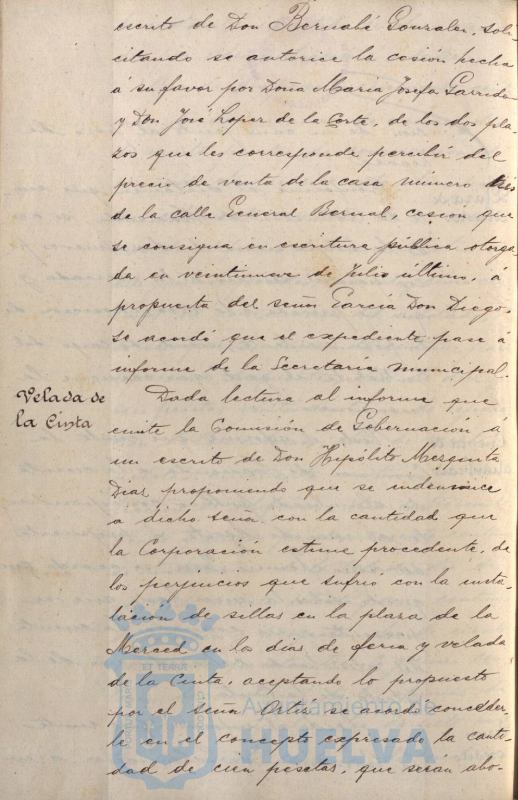 escrito de Don Bernabé Gonzalez, soli-
citando se autorice la cesión hecha
á su favor por Doña Maria Josefa Garrido
y Don José Lopez de la Corte, de los dos pla-
zos que les corresponde percibir del
precio de venta de la casa número
de la calle General Bernal, cesion que
se consigna en escritura pública otorga-
da en veintinueve de Julio último, á
propuesta del señor García Don Diego,
se acordó que el expediente pase á
informe de la Secretaría municipal.
Velada de
la Cinta
Dada lectura al informe que
emite la Comisión de Gobernación á
un escrito de Don Hipólito Mezquita
Diaz proponiendo que se indemnice
a dicho señor con la cantidad que
la Corporación estime procedente, de
los perjuicios que sufrió con la insta-
lación de sillas en la plaza de la
Merced en los dias de feria y velada
de la Cinta, aceptando lo propuesto
por el señor Ortiz se acordó conceder-
le en el concepto expresado la canti-
dad de cien pesetas, que serán abo-
Ayuntamiento de
HUELVA